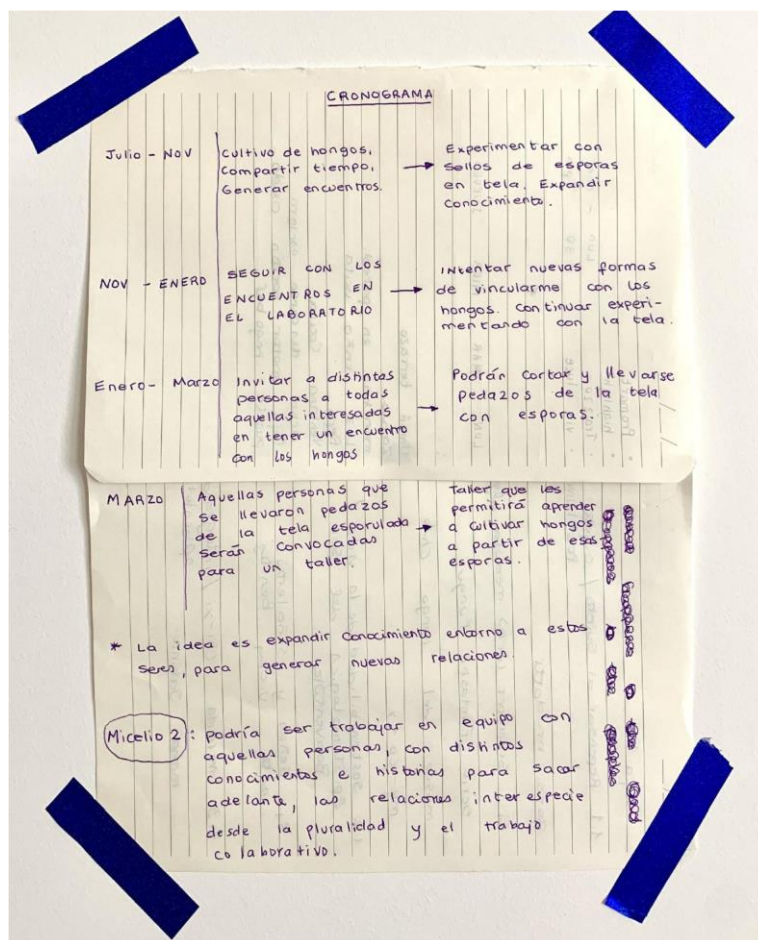 CRONOGRAMA
Julio - NOV
Cultivo de hongos,
Compartir tiempo,
Generar encuentros.
Experimentar con
sellos de esporas
en tela. Expandir
conocimiento.
NOV - ENERO
SEGUIR CON LOS
ENCUENTROS EN
EL LABORATORIO
Intentar nuevas formas
de vincularme con los
hongos. continuar experi-
mentando con la tela.
Enero - Marzo
Invitar a distintas
personas a todas
aquellas interesadas
en tener un encuentro
con los hongos
Podrán cortar y llevarse
pedazos de la tela
con esporas.
MARZO
Aquellas personas que
se llevaron pedazos
de la tela esporulada
serán convocadas
para un taller.
Taller que les
permitirá aprender
a cultivar hongos
a partir de esas
esporas.
* La idea es expandir conocimiento entorno a estos
seres, para generar nuevas relaciones.
Micelio 2: podría ser trabajar en equipo con
aquellas personas, con distintos
conocimientos e historias para sacar
adelante, las relaciones inter especie
desde la pluralidad y el trabajo
colaborativo.